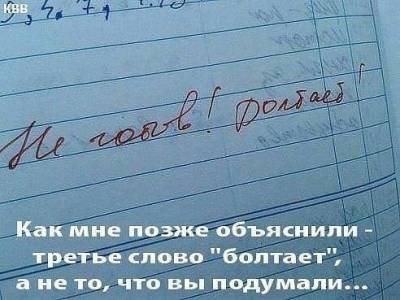 КВВ
Не готов! болтает!
Как мне позже объяснили -
третье слово "болтает",
а не то, что вы подумали...